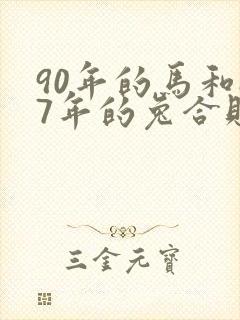 90年的馬和
7年的兔合
三金元寶